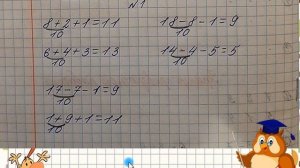 №1
8+2+1=11 18-8-1=9
10 10
6+4+3=13 14-4-5=5
10 10
17-7-1=9
10
1+9+1=11
10